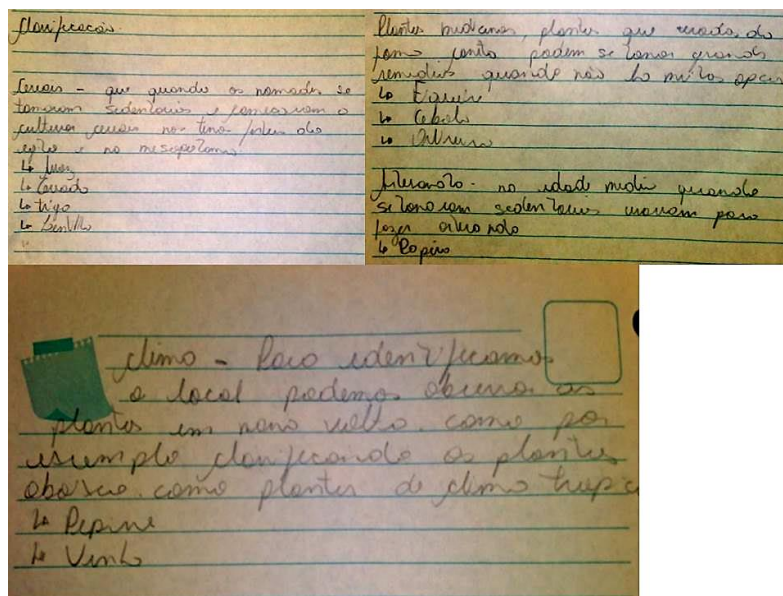 Clarificacão.
Cereais - que quando os nomades se
tornaram sedentarios e começaram a
cultivar cereais nas terra ferteis do
egito e na mesopotamia
↳ Arroz
↳ Cevada
↳ trigo
↳ Lentilha
Plantas medicinas, plantas que usada da
forma certa podem se tornar grandes
remedios quando não há muitas opcas
↳
↳ Cebola
↳
- na idade media quando
se tornaram sedentarios usavam para
fazer
↳ Papiro
Clima - Para identificamos
o local podemos observa as
plantas em nossa volta. como por
esemplo clarificando as plantas
abaxo. como plantas de clima tropica
↳ Pepine
↳